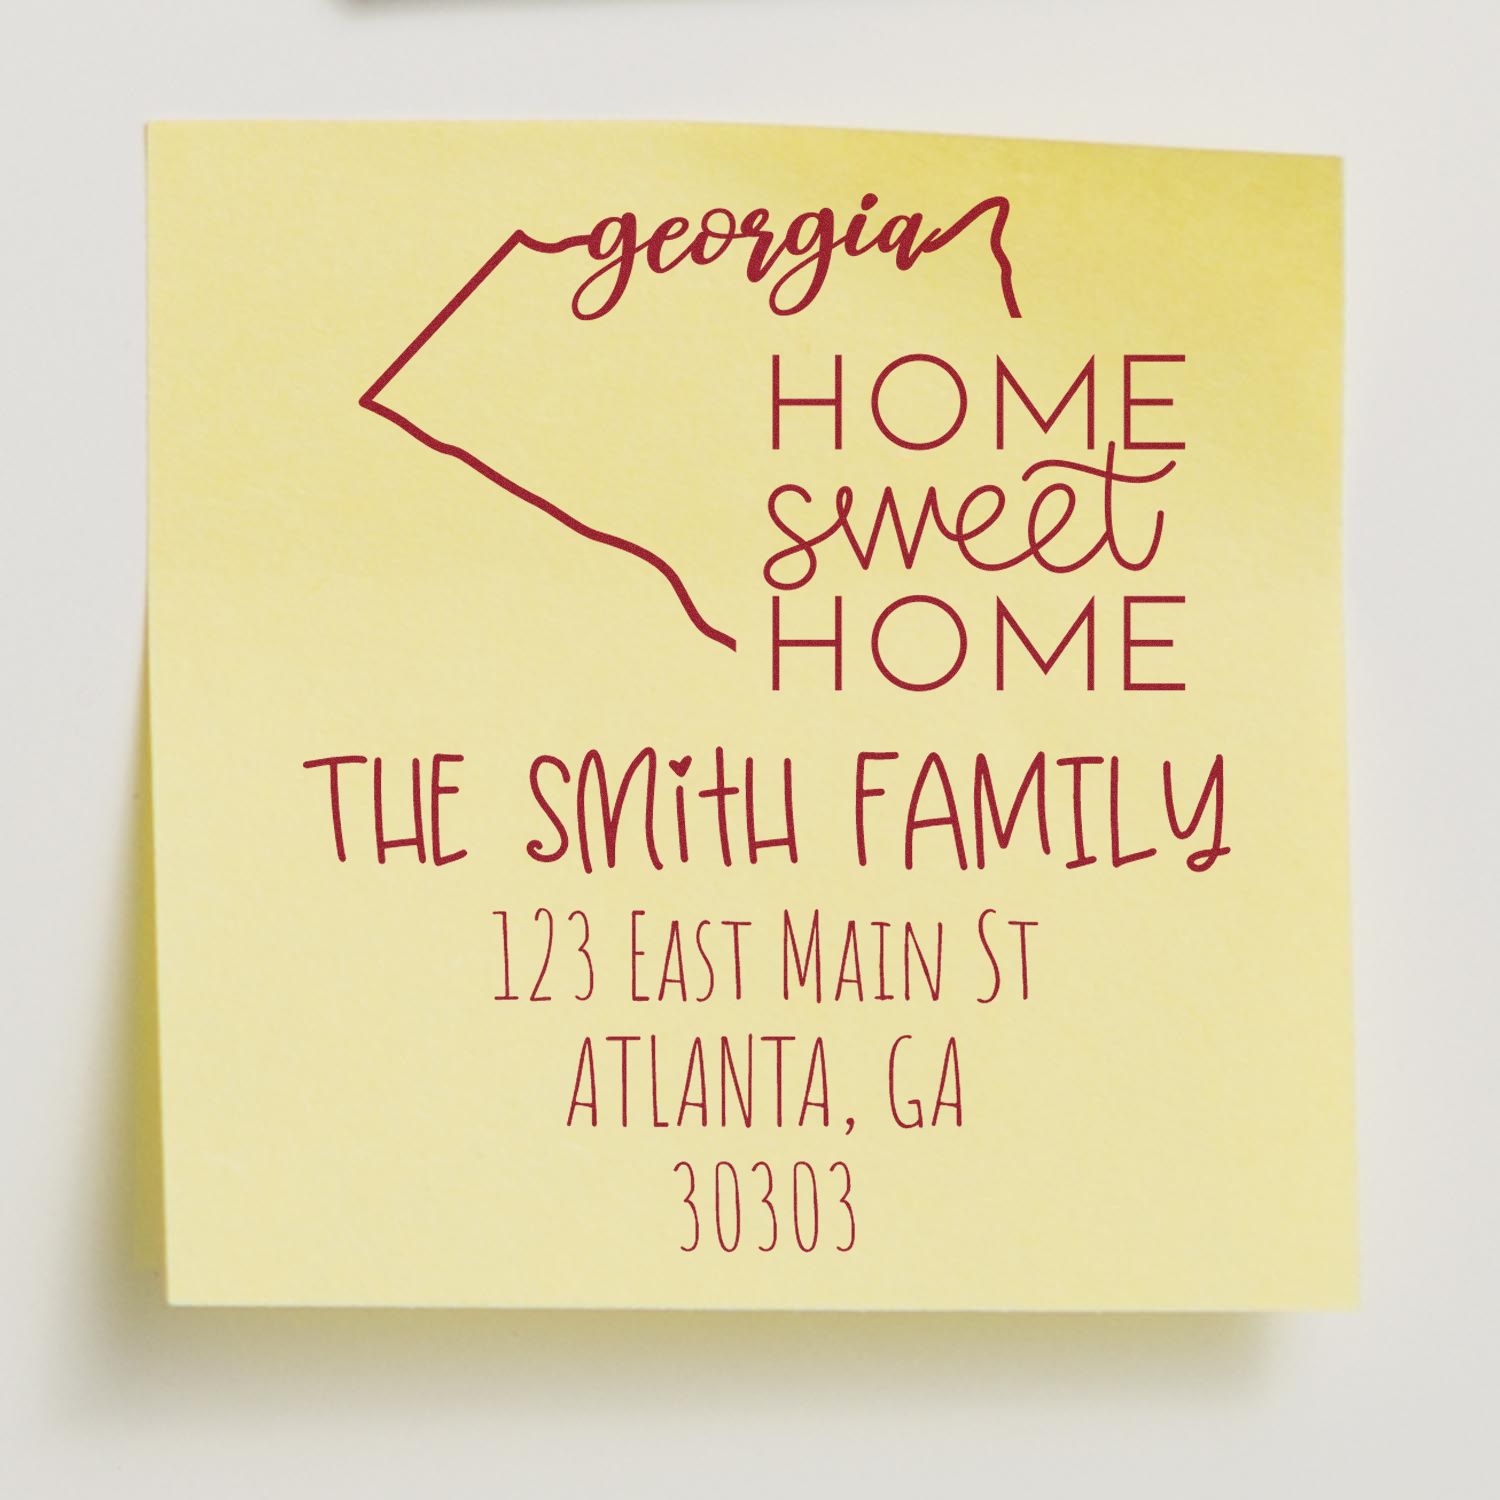 georgia
HOME
sweet
HOME
THE SMitH FAMILY
123 EAST MAIN ST
ATLANTA, GA
30303